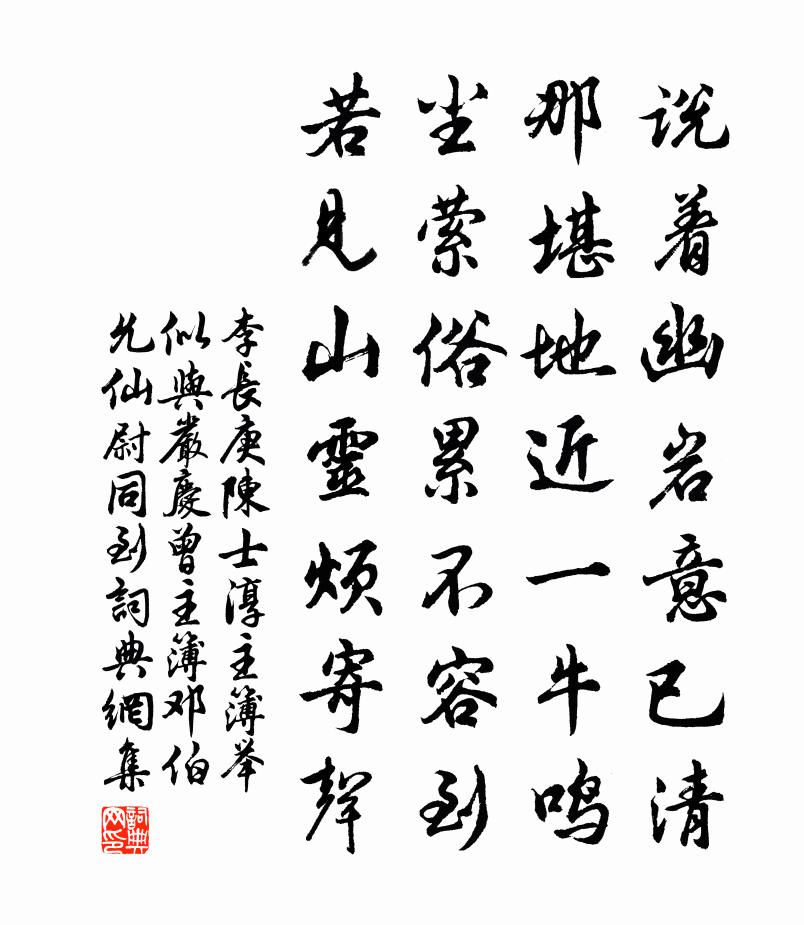 说着幽岩意已清
那堪地近一牛鸣
尘萦俗累不容到
若见山靈烦寄聲
李長庚陳士淳主簿举
似與嚴慶曾主簿邓伯
允仙尉同到詞典網集
詞典网印